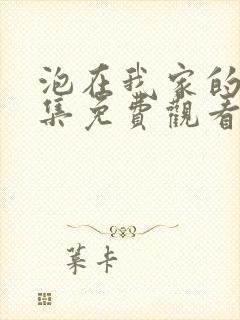 泡在我家的
集免費觀看
葉卡